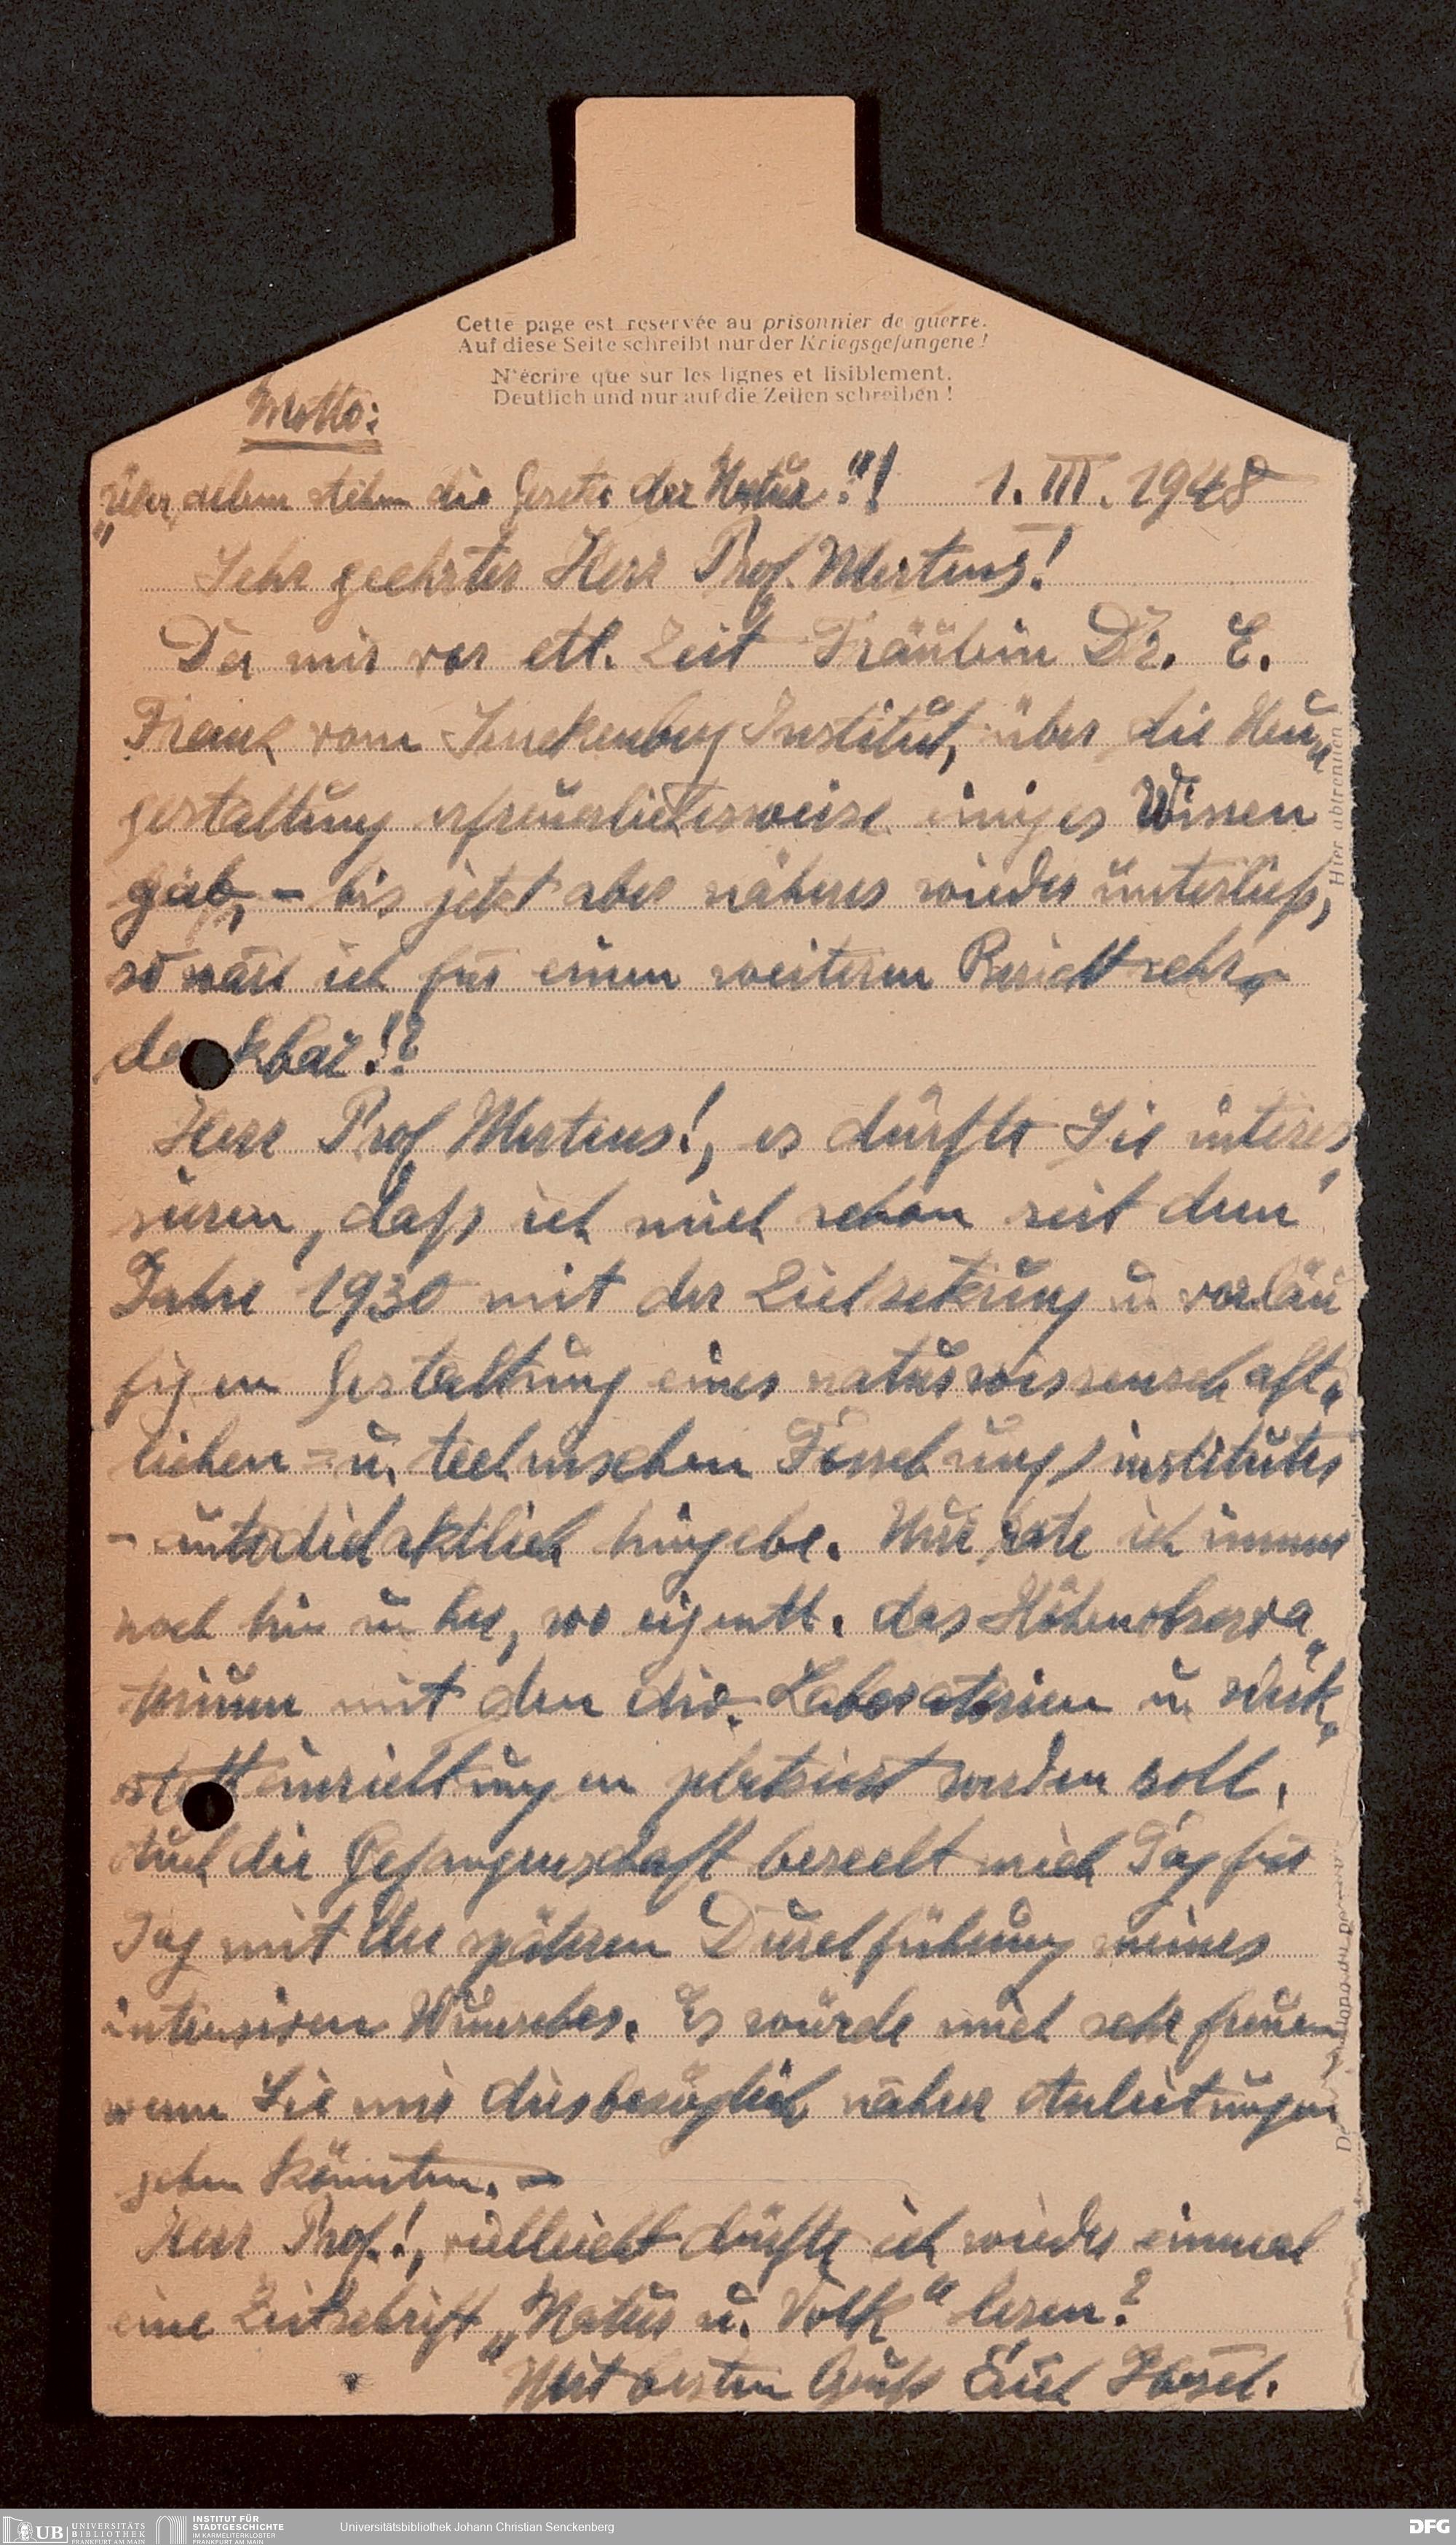 Cette page est reservée au prisonnier de guerre.
Auf diese Seite schreibt nur der Kriegsgefangene!
N'écrire que sur les lignes et lisiblement.
Deutlich und nur auf die Zeilen schreiben!
Motto:
„Über allem stehen die Gesetze der Natur."! 1. III. 1948
Sehr geehrter Herr Prof. Mertens!
Da mir vor etl. Zeit Fräulein Dr. E.
Franz vom Senckenberg Institut, über die Neu„
gestaltung erfreulicherweise einiges Wissen
gab, - bis jetzt aber näheres wieder unterließ,
so wäre ich für einen weiteren Bericht sehr
dankbar!?
Herr Prof Mertens!, es dürfte Sie interes
sieren, daß ich mich schon seit dem
Jahre 1930 mit der Zielsetzung u. vorläu
figen Gestaltung eines naturwissenschaft„
lichen = u. technischen Forschungsinstitutes
- autodidaktlich hingebe. Nur rate ich immer
noch hin u her, wo eigentl. das Höhenobserva„
torium mit den div. Laboratorien u. Werk„
stätteinrichtungen platziert werden soll.
Auch die Gefangenschaft beseelt mich Tag für
Tag mit der späteren Durchführung meines
intensiven Wunsches. Es würde mich sehr freuen
wenn Sie mir diesbezüglich nähere Anleitungen
geben könnten. -
Herr Prof.!, vielleicht dürfte ich wieder einmal
eine Zeitschrift „Natur u. Volk" lesen?
Mit besten Gruß
Hier abtrennen
UB UNIVERSITÄTS BIBLIOTHEK FRANKFURT AM MAIN
INSTITUT FÜR STADTGESCHICHTE IM KARMELITERKLOSTER FRANKFURT AM MAIN
Universitätsbibliothek Johann Christian Senckenberg
DFG